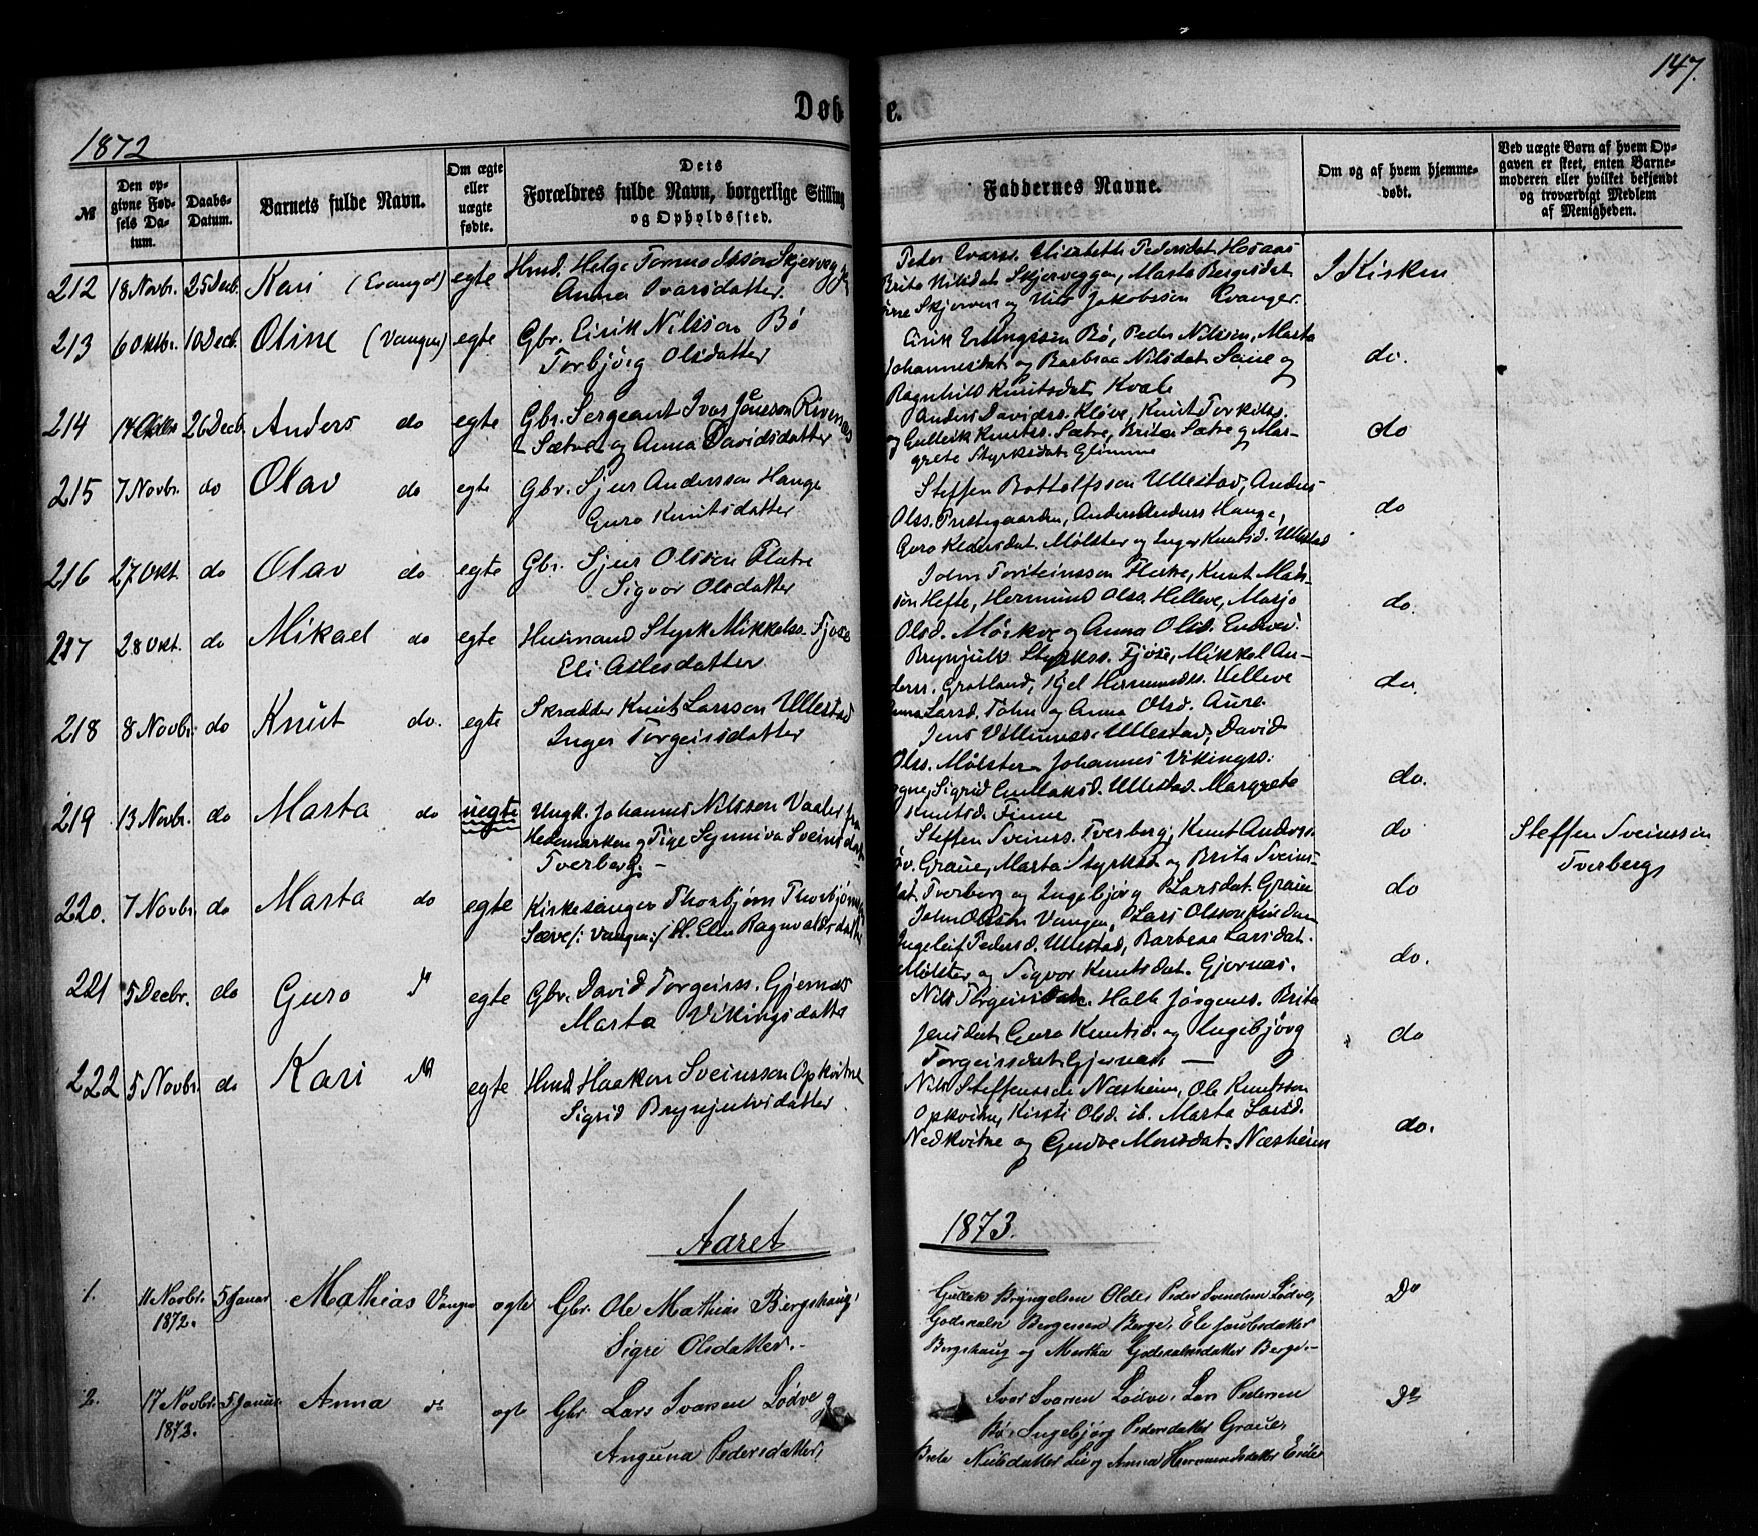 147.
Døbte.
1872
№
Den opgivne Fødsels Datum.
Daabs-Datum.
Barnets fulde Navn.
Om ægte eller uægte fødte.
Dets Forældres fulde Navn, borgerlige Stilling og Opholdssted.
Faddernes Navne.
Om og af hvem hjemmedøbt.
Ved uægte Børn af hvem Opgaven er skeet, enten Barnemoderen eller hvilket bekjendt og troværdigt Medlem af Menigheden.
212 18 Novbr. 25 Decb. Kari (Evanger) egte Hmd. Helge Skjervegg
Anna Ivarsdatter.
Peder Ivarss. Elisabeth Pedersdat
Brita Nilsdat Skjerveggen, Marta Bergesdat
Skjerven og Nils Jakobsson Evanger.
I Kirken
213 6 Oktbr. 10 Decb. Oline (Vangen) egte Gbr. Eirik Nilsson Bø
Torbjørg Olsdatter
Eirik Erlingssen Bø, Peder Nilssen, Marta
Johannesdat og Barbraa Nilsdat og
Ragnhild Knutsdat. Kvale
do.
214 14 26 Decb. Anders do egte Gbr. Sergeant Ivar Rivenæs
Sætre og Anna Davidsdatter
Anders Davidss. Kløve, Knut Torkilss.
og Gulleik Knutss. Sætre, Brita Sætre og Mar-
grete Styrksdat. Glimme
do
215 7 Novbr. do Olav do egte Gbr. Sjur Andersson Hauge
Guro Knutsdatter
Steffen Bottolfsson Ullestad, Anders
Olss. Prestegaarden, Anders Anderss Hauge,
Guro Pedersdat. Mølster og Inger Knutsd. Ullestad
do
216 27 Okt. do Olav do egte Gbr. Sjur Olsson Flatre
Sigvor Olsdatter
John Torsteinsson Knut Mads-
son Hefte, Hermund Olss. Helleve, Marjo
Olsd. Mørkve og Anna Olsd.
do.
217 28 Okt. do Mikael do egte Husmand Styrk Mikkelss. Fjose
Eli Atlesdatter
Brynjulv Styrkss. Fjose, Mikkel An-
derss. Grotland, Kjel Hermundss. Helleve
Anna Larsd. Tøhn og Anna Olsd. Aure.
do.
218 8 Novbr. do Knut do. egte Skrædder Knut Larsson Ullestad
Inger Torgeirsdatter
Jens Ullestad, David
Olss. Mølster Johannes Vikingss.
Sigrid Gullaksd. Ullestad. Margrete
Knutsd. Finne
do.
219 13 Novbr. do Marta do uegte Ungk. Johannes Nilsson Vaaler fra
Hedemarken og Pige Synniva Sveinsdat
Tverberg. —
Steffen Sveinss. Tverberg, Knut Anderss.
Graue, Marta Styrksd. og Brita Sveins-
dat. Tverberg og Ingebjørg Larsdat. Graue
do
Steffen Sveinsson
Tverberg
220. 7 Novbr. do Marta do egte Kirkesanger Thorbjørn Thorbjørnsen
Sæve /: Vangen :/ H. Elen Ragnvaldsdatter
John Olsen Vangen, Lars Olsson
Ingeleif Pedersd. Ullestad, Barbraa Larsdat.
Mølster og Sigvor Knutsdat. Gjernæs.
do
do.
221 5 Decbr. do Guro egte Gbr. David Torgeirss. Gjernæs
Marta Vikingsdatter
Nils Torgeirs Halle Jørgenss. Brita
Jensdat Guro Knutsd. og Ingebjørg
Torgeirsdat. Gjernæs. —
do
222 5 Novbr. do Kari egte Hmd. Haakon Sveinsson Opkvitne
Sigrid Brynjulvsdatter
Nils Steffenssen Næsheim, Ole Knutsson
Opkvitne, Kirsti Olsd. ib. Marta Larsd.
Nedkvitne og Gudve Monsdat. Næsheim
do.
Aaret 1873.
1. 11 Novbr. 1872. 5 Januar Mathias Vangen egte Gbr. Ole Mathias Bergshaug
Sigri Olsdatter.
Gullek Bryngelsen Olde, Peder Svendsen Lødve,
Godskalk Bergesen Berge, Eli Jacobsdatter
Bergshaug og Martha Godskalksdatter Berge. —
Do
2. 17 Novbr. 1872. 5 Januar Anna do egte Gbr. Lars Ivarsen Lødve og
Anguna Pedersdatter,
Ivar Ivarsen Lødve, Lars Pedersen
Bø, Ingebjørg Pedersdatter Graue,
Brita Nielsdatter Lie og Anna Hermundsdatter
Do